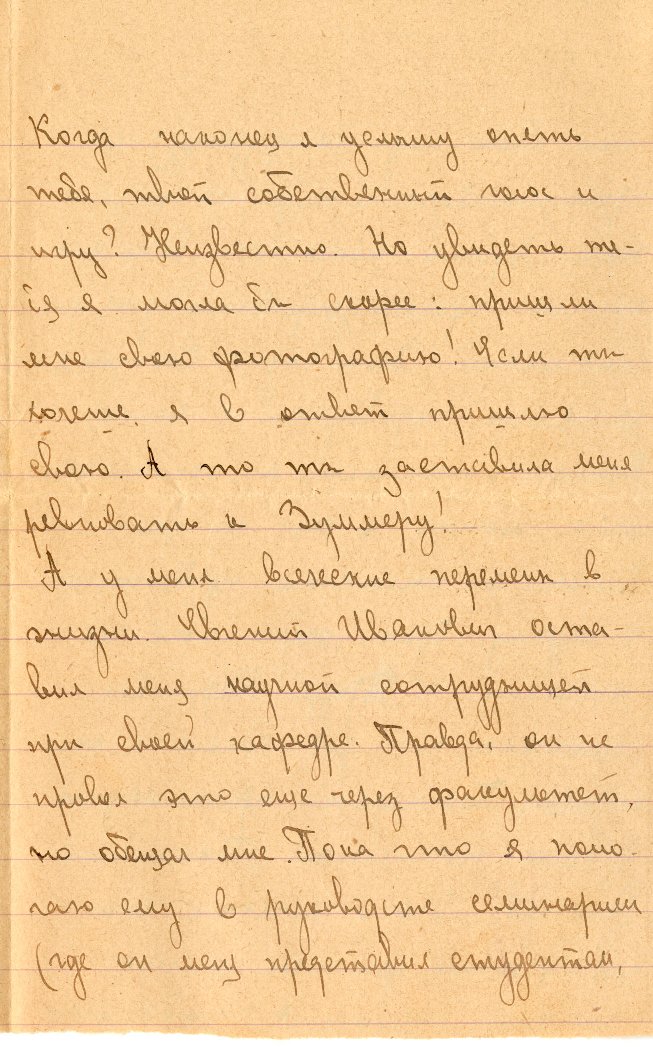 Когда наконец я услышу опять
тебя, твой собственный голос и
игру? Неизвестно. Но увидеть те-
бя я могла бы скорее: пришли
мне свою фотографию! Если ты
хочешь, я в ответ пришлю
свою. А то ты заставила меня
ревновать к Зуммеру!
А у меня всяческие перемены в
жизни. Евгений Иванович оста-
вил меня научной сотрудницей
при своей кафедре. Правда, он не
провел это еще через факультет,
но обещал мне. Пока что я помо-
гаю ему в руководстве семинарием
(где он меня представил студентам,